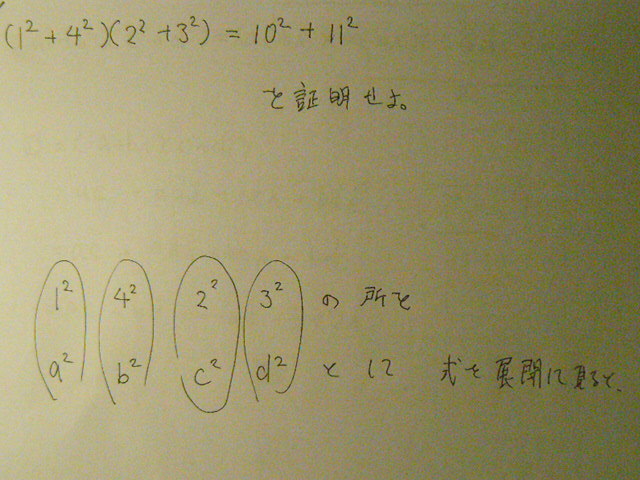 (1² + 4²)(2² + 3²) = 10² + 11²
を証明せよ。
1² 4² 2² 3² の所を
a² b² c² d² として 式を展開して見ると、